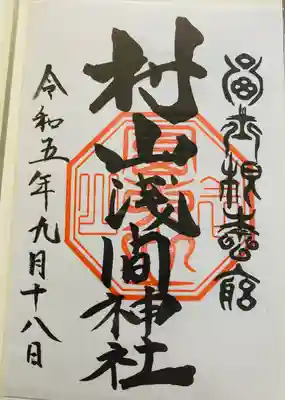 富士根本宮
村山浅間神社
令和五年九月十八日